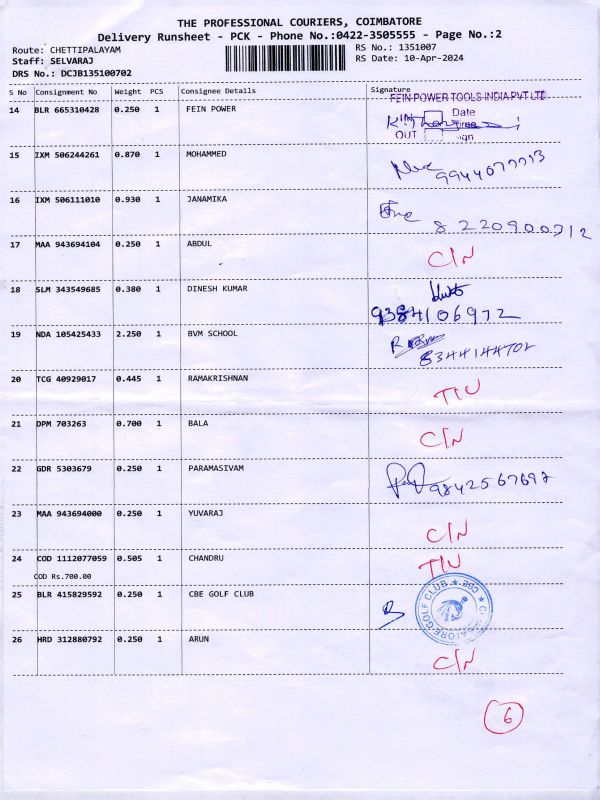 THE PROFESSIONAL COURIERS, COIMBATORE
Delivery Runsheet - PCK - Phone No.:0422-3505555 - Page No.:2
Route: CHETTIPALAYAM
RS No.: 1351007
Staff: SELVARAJ
RS Date: 10-Apr-2024
DRS No.: DCJB135100702
S No Consignment No Weight PCS Consignee Details Signature
FEIN POWER TOOLS INDIA PVT LTD
14 BLR 665310428 0.250 1 FEIN POWER
IN Date
OUT
15 IXM 506244261 0.870 1 MOHAMMED
16 IXM 506111010 0.930 1 JANAMIKA
8 220900712
17 MAA 943694104 0.250 1 ABDUL
C/N
18 SLM 343549685 0.380 1 DINESH KUMAR
9384106972
19 NDA 105425433 2.250 1 BVM SCHOOL
8344144702
20 TCG 40929017 0.445 1 RAMAKRISHNAN
21 DPM 703263 0.700 1 BALA
C/N
22 GDR 5303679 0.250 1 PARAMASIVAM
9842567697
23 MAA 943694000 0.250 1 YUVARAJ
C/N
24 COD 1112077059 0.505 1 CHANDRU
COD Rs.700.00
25 BLR 415829592 0.250 1 CBE GOLF CLUB
COIMBATORE GOLF CLUB ★ CBE ★
B
26 HRD 312880792 0.250 1 ARUN
C/N
6